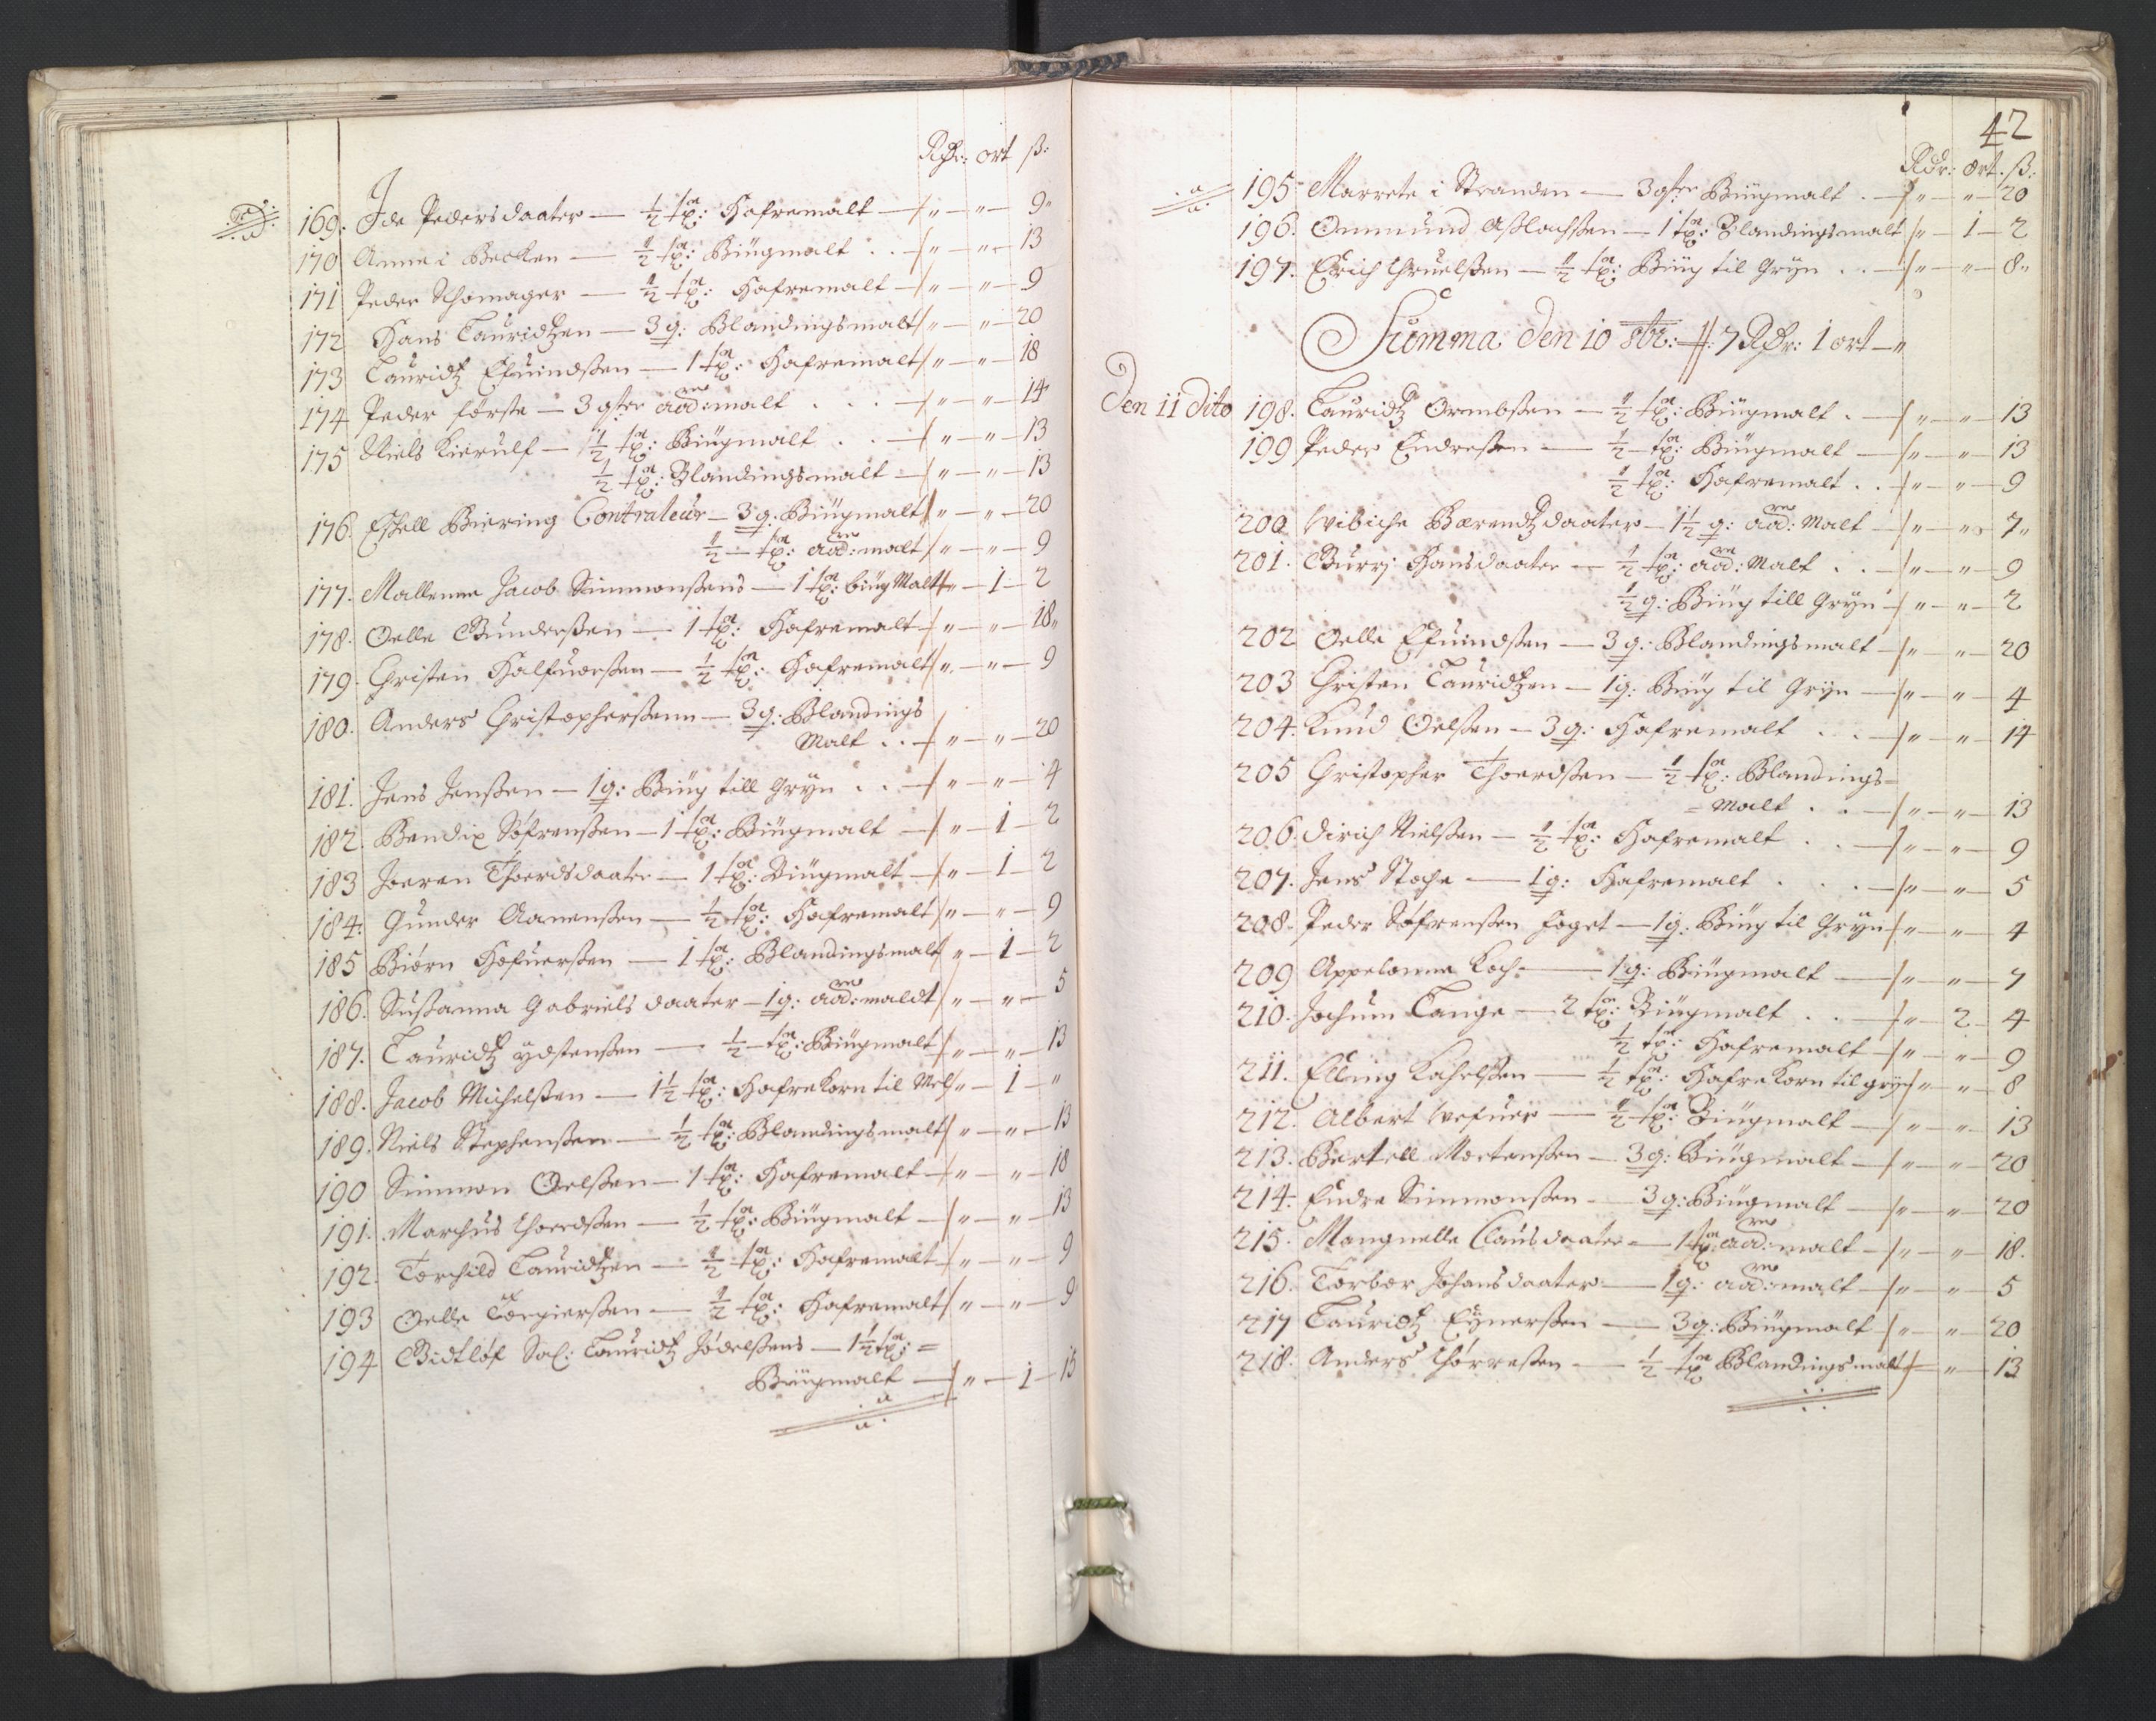 Rdr: ort ß:
169. Ide Pedersdaater — ½ tø: Hafremalt — " — " — 9"
170 Anne i Becken — ½ tø: Biügmalt . . — " — " — 13
171 Peder Schomager — ½ tø: Hafremalt — " — " — 9
172 Hans Lauridtzen — 3 q: Blandingsmalt " — " — 20
173 Lauridtz Efuindßen — 1 tø: Hafremalt " — " — 18
174 Peder förste — 3 qter aad: malt . . . — " — " — 14
175 Niels Kierulf — ½ tø: Biügmalt . . — " — " — 13
½ tø: Blandingsmalt — " — " — 13
176. Eschell Biering Contraleür — 3 q. Biügmalt " — " — 20
½ — tø: aad: malt " — " — 9
177. Mallenne Jacob Simmonßens — 1 tø: biüg Malt " — 1 — 2
178. Oelle Gunderßen — 1 tø: Hafremalt " — " — 18"
179. Christen Halfuorßen — ½ tø: Hafremalt " — " — 9
180. Anders Christopherßenn — 3 q: Blandings
Malt . . — " — " — 20
181. Jens Jenßen — 1 q: Biüg till Gryn . . — " — " — 4
182. Bendix Söfrenßen — 1 tø: Biügmalt — " — 1 — 2
183 Joeren Thoerdsdaater — 1 tø: Biügmalt — " — 1 — 2
184. Gunder Aanenßen — ½ tø: Hafremalt " — " — 9
185 Biörn Hofuerßen — 1 tø: Blandingsmalt " — 1 — 2
186. Sußanna Gabriels daater — 1 q: aad: maldt " — " — 5
187. Lauridtz ydstenßen — ½ — tø: Biügmalt " — " — 13
188. Jacob Michelßen — 1½ tø: Hafre Korn til Mel " — 1 — "
189. Niels Stephenßen — ½ tø: Blandingsmalt " — " — 13
190 Simmon Oelßen — 1 tø: Hafremalt — " — " — 18
191. Marchus Thoerdßen — ½ tø: Biügmalt — " — " — 13
192. Torchild Lauridtzen — ½ tø: Hafremalt — " — " — 9
193 Oelle Torgierßen — ½ tø: Hafremalt " — " — 9
194 Sal: Lauridtz Jödelßens — 1½ tø: =
Biügmalt — " — 1 — 15
42
Rdr: ort. ß:
195 Marrete i Stranden — 3 qter Biügmalt . — " — " — 20
196. Ommund Aßlachßen — 1 tø: Blandingsmalt " — 1 — 2
197. Erich Thruelßen — ½ tø: Biüg til Gryn . . — " — " — 8"
Summa den 10 8br: — 7 Rdr: 1 ort — "
Den 11 dito 198. Lauridtz Ormbßen — ½ tø: Biügmalt . — " — " — 13
199 Peder Endreßen — ½ — tø: Biügmalt — " — " — 13
½ tø: Hafremalt . . — " — " — 9
200 Wibiche Bærendtz daater — 1½ q: aad: Malt — " — " — 7"
201. Burrj Hansdaater — ½ tø: aad: Malt . . — " — " — 9
½ q: Biüg till Gryn — " — " — 2
202 Oelle Efuindßen — 3 q: Blandingsmalt — " — " — 20
203 Christen Lauridtzen — 1 q: Biüg til Gryn — " — " — 4
204. Knud Oelßen — 3 q: Hafremalt . . — " — " — 14
205 Christopher Thoerdßen — ½ tø: Blandings =
= Malt . . — " — " — 13
206. Dirich Nielßen — ½ tø: Hafremalt . . — " — " — 9
207. Jens Stoche — 1 q: Hafremalt . . . — " — " — 5
208. Peder Söfrenßen foget — 1 q: Biüg til Gryn " — " — 4
209 Appelonne Koch — 1 q: Biügmalt — " — " — 7
210. Jochum Lange — 2 tø: Biügmalt . . — " — 2 — 4
½ tø: Hafremalt — " — " — 9
211. Elling Kaßelßen — ½ tø: Hafre Korn til gryn " — " — 8
212. Albert Wefuer — ½ tø: Biügmalt — " — " — 13
213. Bertell Mortenßen — 3 q: Biügmalt — " — " — 20
214. Endre Simmonßen — 3 q: Biügmalt — " — " — 20
215. Mangnelle Clausdaater — 1 tø: aad: malt — " — " — 18.
216. Torbor Johansdaater — 1 q: aad: malt — " — " — 5
217 Lauridtz Eynerßen — 3 q: Biügmalt " — " — 20
218. Anders Thörreßen — ½ tø Blandingsmalt — " — 13